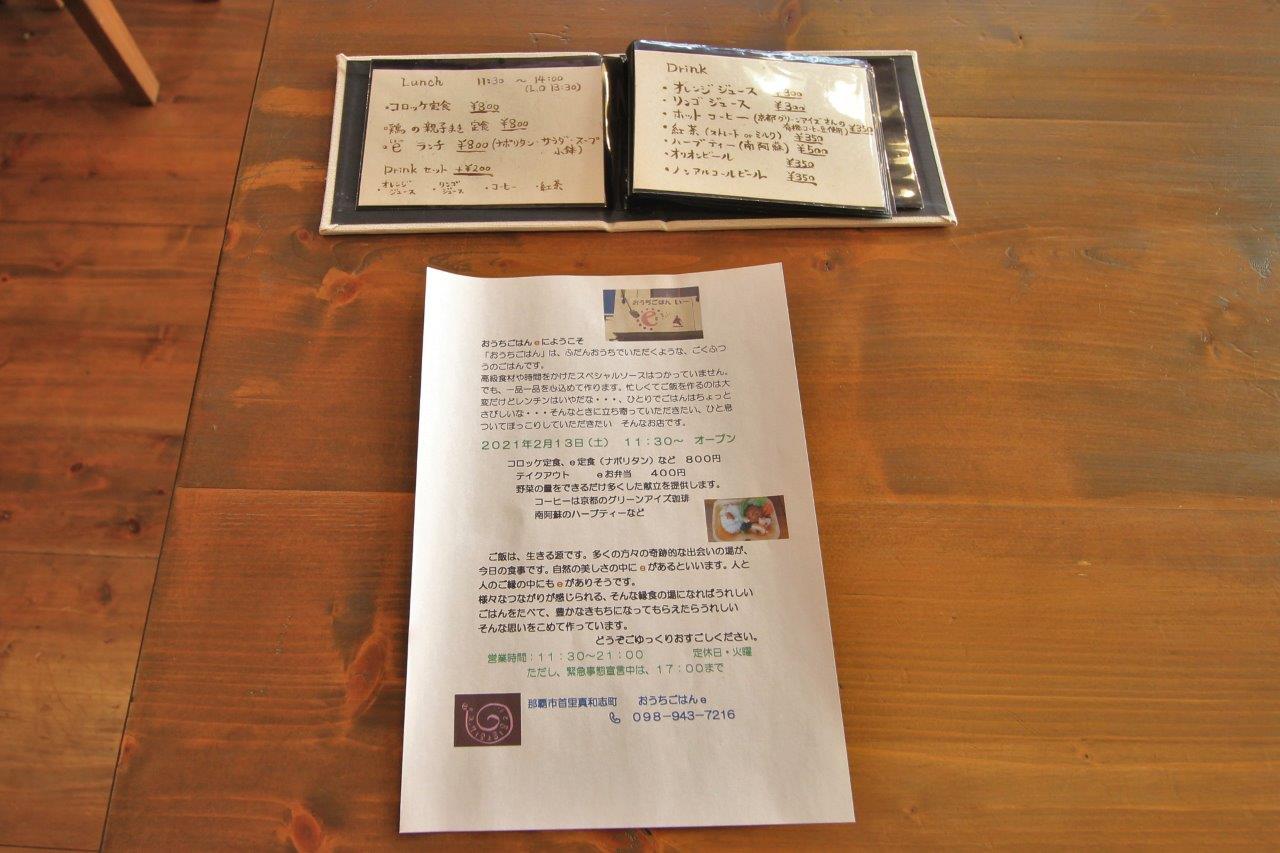 Lunch 11:30 ～ 14:00
(L.O 13:30)
・コロッケ定食 ¥800
・鶏の親子まき定食 ¥800
・e ランチ ¥800 (ナポリタン・サラダ・スープ
小鉢)
Drink セット +¥200
・オレンジジュース ・リンゴジュース ・コーヒー ・紅茶
Drink
・オレンジジュース ¥300
・リンゴジュース ¥300
・ホットコーヒー (京都グリーンアイズさんの
有機コーヒー豆使用) ¥350
・紅茶 (ストレート or ミルク) ¥350
・ハーブティー (南阿蘇) ¥500
・オリオンビール ¥350
・ノンアルコールビール ¥350
おうちごはん いー
e
おうちごはんeにようこそ
「おうちごはん」は、ふだんおうちでいただくような、ごくふつ
うのごはんです。
高級食材や時間をかけたスペシャルソースはつかっていません。
でも、一品一品を心込めて作ります。忙しくてご飯を作るのは大
変だけどレンチンはいやだな・・・、ひとりでごはんはちょっと
さびしいな・・・そんなときに立ち寄っていただきたい、ひと息
ついてほっこりしていただきたい そんなお店です。
2021年2月13日(土) 11:30～ オープン
コロッケ定食、e定食(ナポリタン)など 800円
テイクアウト eお弁当 400円
野菜の量をできるだけ多くした献立を提供します。
コーヒーは京都のグリーンアイズ珈琲
南阿蘇のハーブティーなど
ご飯は、生きる源です。多くの方々の奇跡的な出会いの場が、
今日の食事です。自然の美しさの中にeがあるといいます。人と
人のご縁の中にもeがありそうです。
様々なつながりが感じられる、そんな縁食の場になればうれしい
ごはんをたべて、豊かなきもちになってもらえたらうれしい
そんな思いをこめて作っています。
どうぞごゆっくりおすごしください。
営業時間:11:30～21:00 定休日・火曜
ただし、緊急事態宣言中は、17:00まで
那覇市首里真和志町 おうちごはんe
098-943-7216